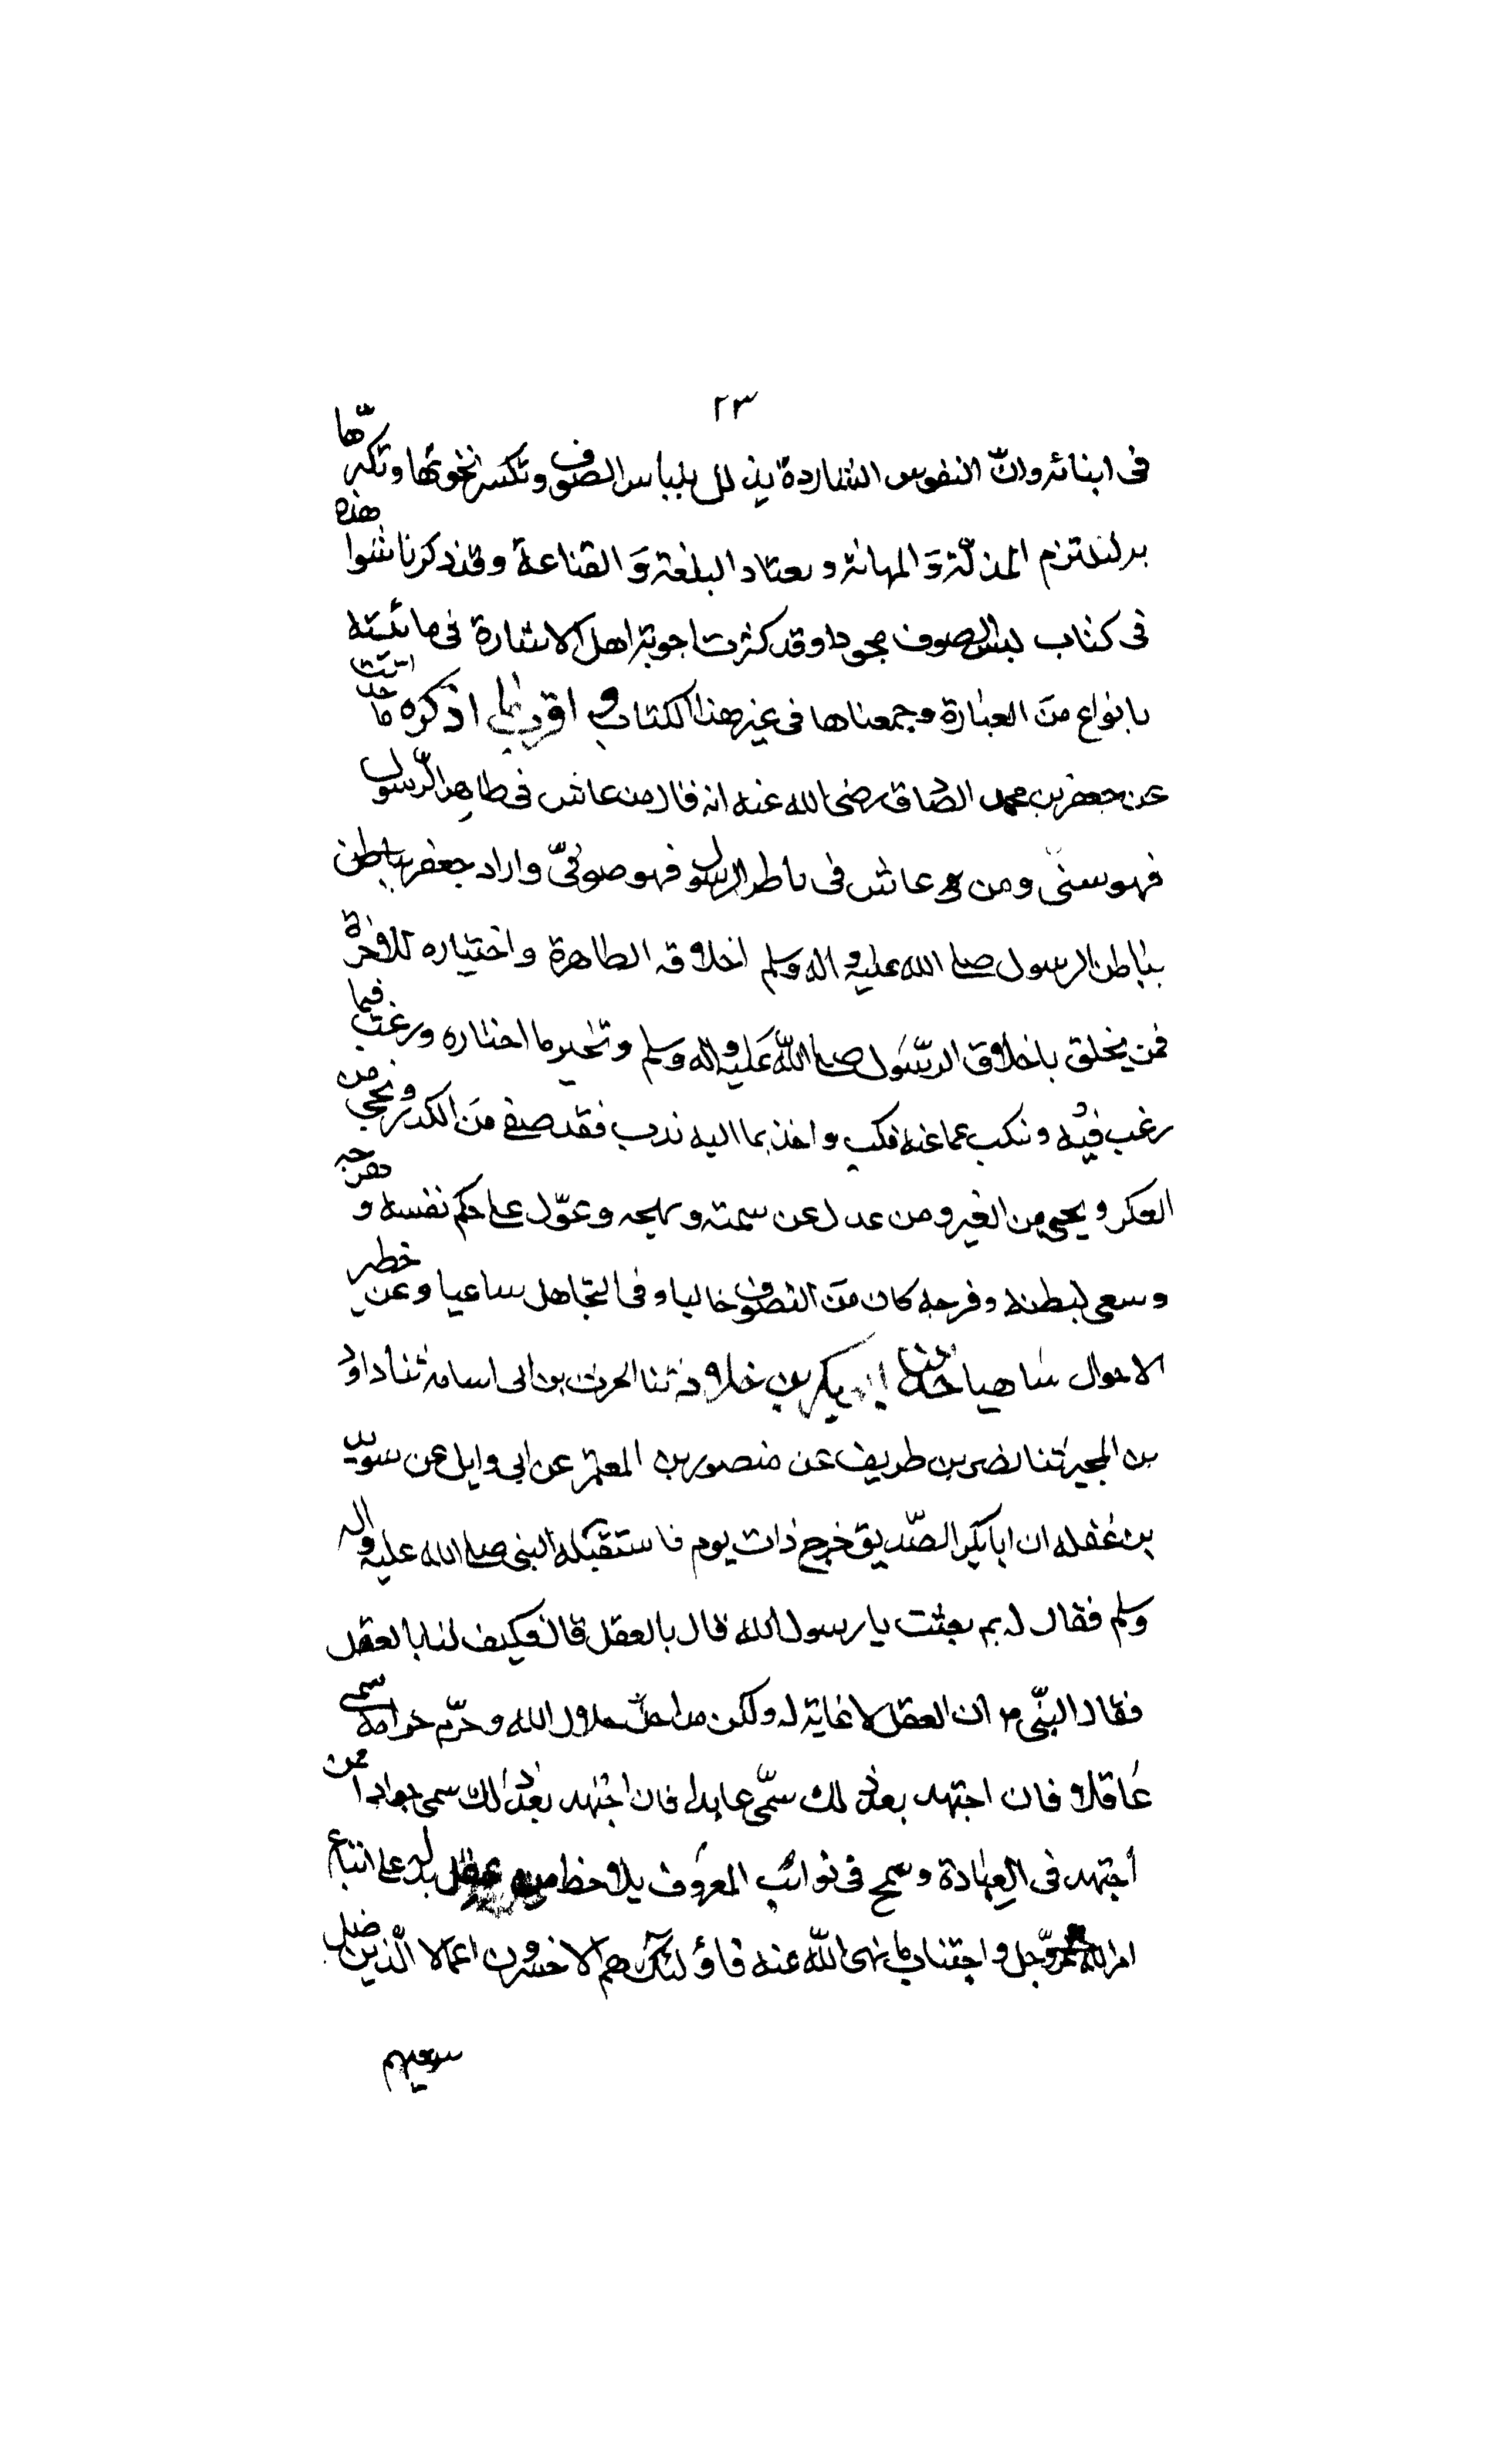 ٢٣
فى ابنائه وان النفوس الشاردة يذلل بلباس الصوف وتكسر نخوتها وتكبرها
به لتلتزم المذلّة وَالمهانة ويعتاد البلغة وَالقناعة وقد ذكرنا شواهده
فى كتاب لبس الصوف مجودا وقد كثرت اجوبة اهل الاشارة فى مائيته
بانواع منَ العبارة وجمعناها فى غير هذا الكتاب واقرب ما اذكره ما حدثت
عن جعفر بن محمد الصادق رضى الله عنه انه قال من عاش فى ظاهر الرّسول
فهو سنى ومن عاش فى باطن الرسول فهو صوفىّ واراد جعفر بباطن
بباطن الرسول صلى الله عليه واله وسلم اخلاقه الطاهرة واختياره للاخرة
فمن يخلق باخلاق الرسَول صلى اللّه عَليه واله وسلم وتخير ما اختاره ورغب فيما
رغب فيه ونكب عما عنه نكب واخذ بما اليه ندب فقد صفى منَ الكدر ونحى من
العكر ويحيى من الغير ومن عدل عن سمته ونهجه وعوّل على حكم نفسه وهرجه
وسعى لبطنه وفرجه كان منَ التصوف خاليا وفى التجاهل ساعيا وعن خطير
الاحوال ساهيا حدثنا ابو بكر بن خلاد ثنا الحرث بن ابى اسامة ثنا داود
بن المحبر ثنا نصر بن طريف عن منصور بن المعتمر عن ابى وايل عن سويد
بن غفله ان ابا بكر الصّديق خرج ذات يوم فاستقبله النبى صلى الله عليه واله
وسلم فقال له بم بعثت يا رسول الله قال بالعقل قال فكيف لنا بالعقل
فقال النبّى م ان العقل لا غاية له ولكن من احلّ حلال الله وحرّم حرامه سمى
عَاقلا فان اجتهد بعد ذلك سمّى عابدا فان اجتهد بعد ذلك سمى جوادا فمن
أجتهد فى العِبادة وسمح فى نوائب المعروف بلا حظ من عقل يدله على اتباع
امر الله عزّوجل واجتناب ما نهى اللّه عنه فاؤلئك هم الاخسرون اعمالا الّذين ضل
سعيهم